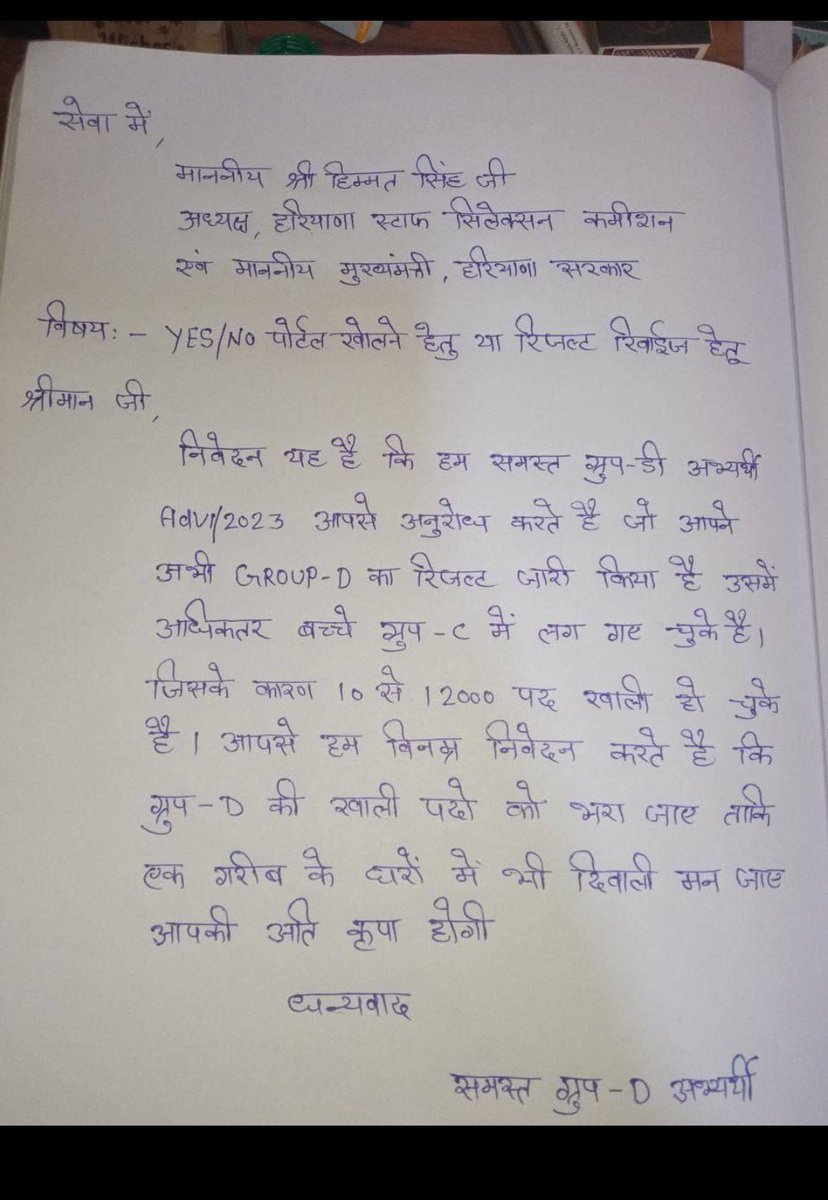 सेवा में,
माननीय श्री हिम्मत सिंह जी
अध्यक्ष, हरियाणा स्टाफ सिलेक्सन कमीशन
एवं माननीय मुख्यमंत्री, हरियाणा सरकार
विषय: - YES/NO पोर्टल खोलने हेतु या रिजल्ट रिवाईज हेतू
श्रीमान जी,
निवेदन यह है कि हम समस्त ग्रुप-डी अभ्यर्थी
Adv1/2023 आपसे अनुरोध करते है जो आपने
अभी GROUP-D का रिजल्ट जारी किया है उसमें
अधिकतर बच्चे ग्रुप-C में लग गए चुके है।
जिसके कारण 10 से 12000 पद खाली हो चुके
है। आपसे हम विनम्र निवेदन करते है कि
ग्रुप-D की खाली पदो को भरा जाए ताकि
एक गरीब के घरों में भी दिवाली मन जाए
आपकी अति कृपा होगी
धन्यवाद
समस्त ग्रुप-D अभ्यर्थी